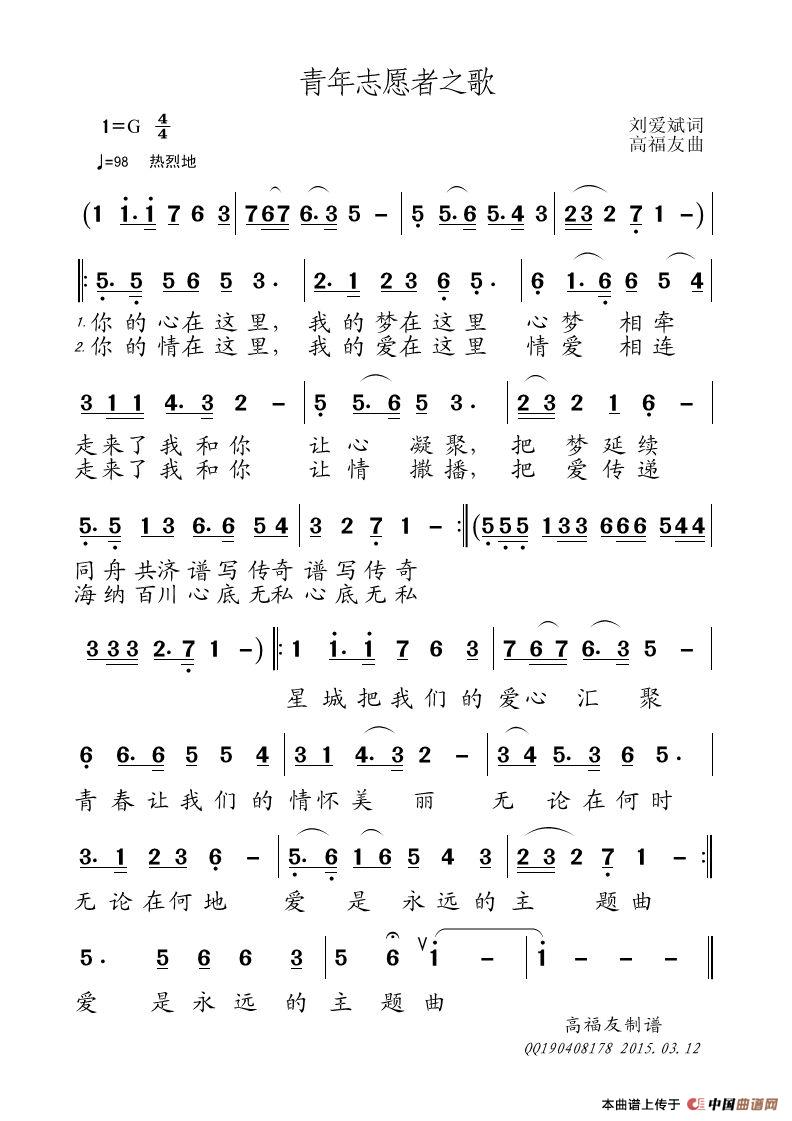 青年志愿者之歌
1=G 4/4
刘爱斌词
高福友曲
♩=98 热烈地
(1 1. 1 7 6 3 | 7 6 7 6. 3 5 - | 5 5. 6 5. 4 3 | 2 3 2 7 1 -)
‖: 5. 5 5 6 5 3. | 2. 1 2 3 6 5. | 6 1. 6 6 5 4 |
1.你的心在这里, 我的梦在这里 心梦 相牵
2.你的情在这里, 我的爱在这里 情爱 相连
3 1 1 4. 3 2 - | 5 5. 6 5 3. | 2 3 2 1 6 - |
走来了我和你 让心 凝聚, 把 梦延续
走来了我和你 让情 撒播, 把 爱传递
5. 5 1 3 6. 6 5 4 | 3 2 7 1 - :‖ (5 5 5 1 3 3 6 6 6 5 4 4 |
同舟共济谱写传奇谱写传奇
海纳百川心底无私心底无私
3 3 3 2. 7 1 -) ‖: 1 1. 1 7 6 3 | 7 6 7 6. 3 5 - |
星城把我们的爱心 汇 聚
6 6. 6 5 5 4 | 3 1 4. 3 2 - | 3 4 5. 3 6 5. |
青春让我们的情怀美 丽 无 论在何时
3. 1 2 3 6 - | 5. 6 1 6 5 4 3 | 2 3 2 7 1 - :‖
无论在何地 爱 是 永远的主 题曲
5. 5 6 6 3 | 5 6 V 1 - | 1 - - - ‖
爱 是永远 的主题曲
高福友制谱
QQ190408178 2015.03.12
本曲谱上传于 中国曲谱网